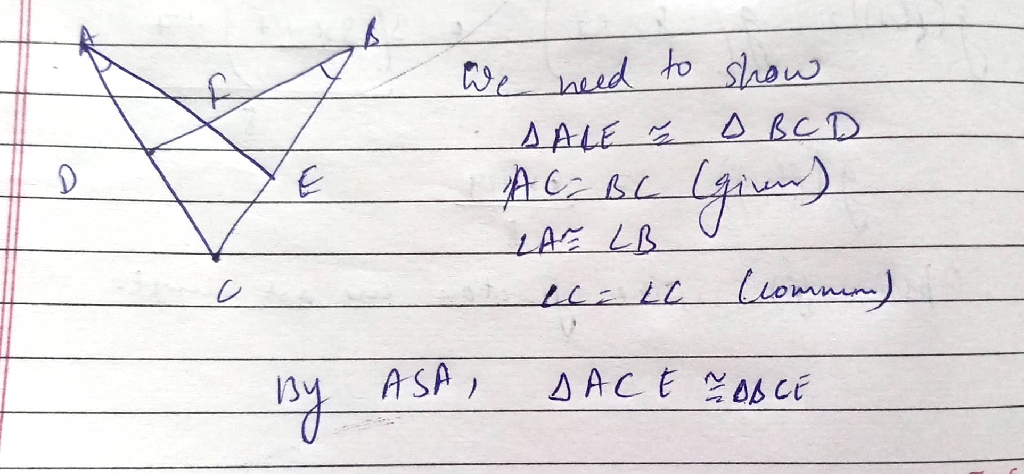 A
B
F
We need to show
△ALE ≅ △BCD
D
E
AC = BC (given)
∠A ≅ ∠B
C
∠C = ∠C (common)
By ASA, △ACE ≅ △BCE